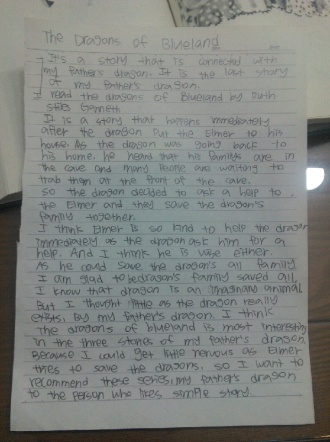 The Dragons of Blueland
It's a story that is connected with
my father's dragon. It is the last story
of my father's dragon.
I read the dragons of Blueland by Ruth
stiles Gannett
It is a story that happens immediately
after the dragon put the Elmer to his
house. As the dragon was going back to
his home, he heard that his familys are in
the cave and many people are waiting to
trab them at the front of the cave.
So the dragon decided to ask a help to
the Elmer and they save the dragon's
family together.
I think Elmer is so kind to help the dragon
immediately as the dragon ask him for a
help. And I think he is wise either.
As he could save the dragon's all family
I am glad to dragon's family saved all.
I know that dragon is an imaginary animal
but I thought little as the dragon really
exists. By my father's dragon. I think
The dragons of blueland is most interesting
in the three stories of my father's dragon
Because I could get little nervous as Elmer
tries to save the dragons. so I want to
recommend these series, my father's dragon
to the person who likes simple story.